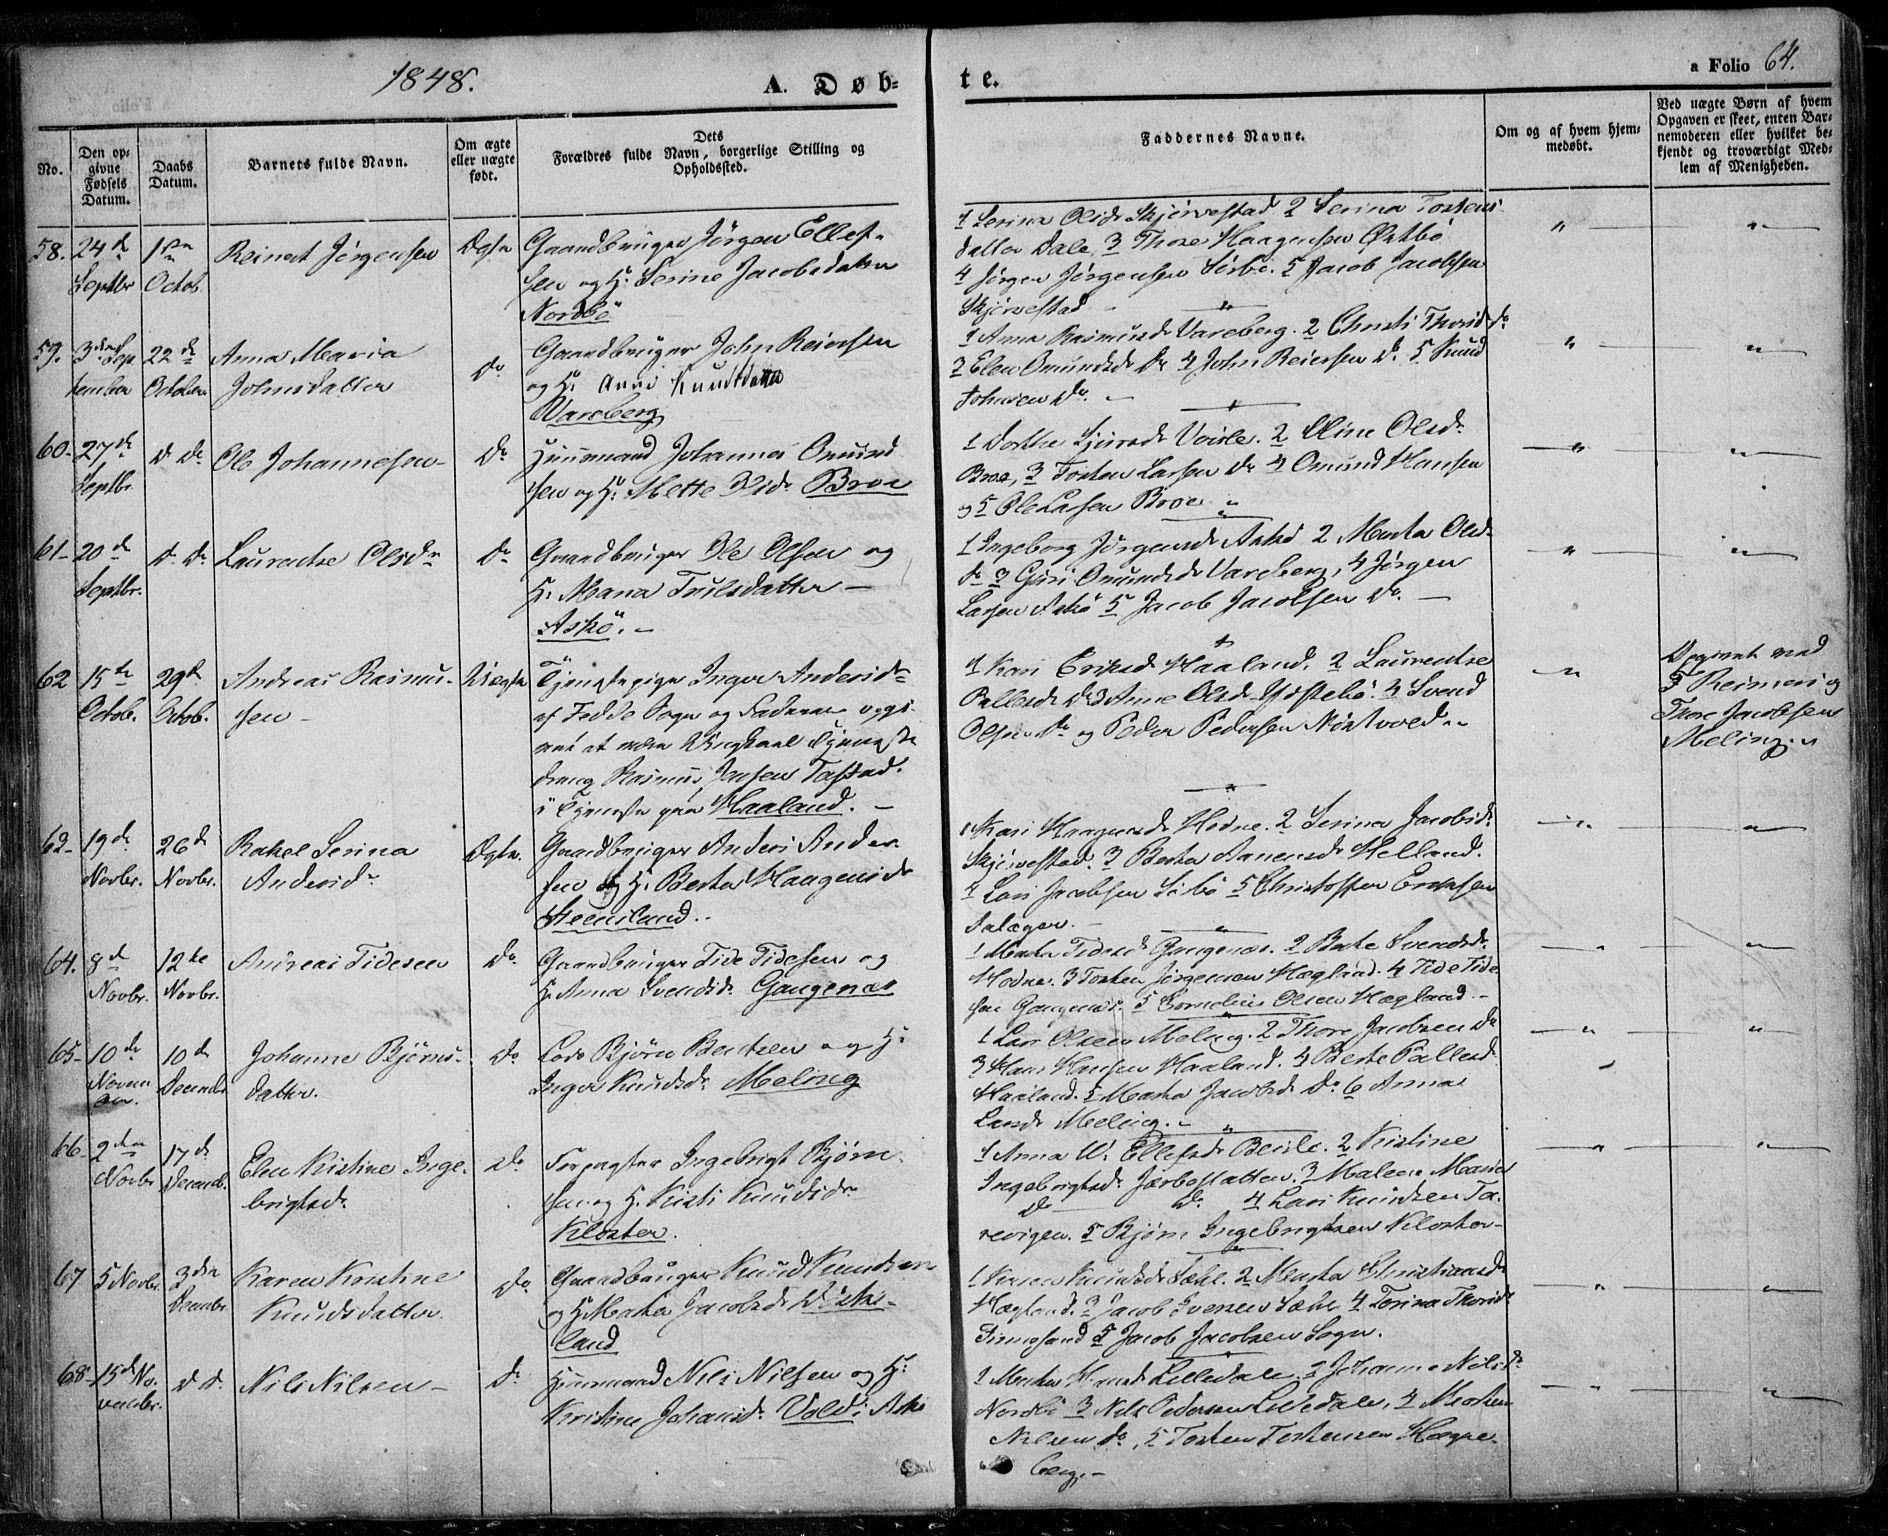 1848.
A. Døb-
te.
a Folio 64.
No.
Den op-
givne
Fødsels
Datum.
Daabs
Datum.
Barnets fulde Navn.
Om ægte
eller uægte
født.
Dets
Forældres fulde Navn, borgerlige Stilling og
Opholdssted.
Faddernes Navne.
Om og af hvem hjem-
medøbt.
Ved uægte Børn af hvem
Opgaven er skeet, enten Bar-
nemoderen eller hvilket be-
kjendt og troværdigt Med-
lem af Menigheden.
58. 24de
Septbr
1ste
Octob.
Reinert Jørgensen
Ægte
Gaardbruger Jørgen Ellef-
sen og H: Serine Jacobsdatter
Nordbö
1 Serina Olsdr Skjørvestad 2 Serina Tostens-
datter Dale, 3 Thore Haagensen Østbö
4 Jørgen Jørgensen Sörbö. 5 Jacob Jacobsen
Skjørvestad
59. 3die Sep-
tember
22de
October
Anna Maria
Johnsdatter
Do
Gaardbruger John Reiersen
og H: Anna Knudsdatter
Vareberg
1 Anna Rasmusdr Vareberg. 2 Christi Thorsdr Do
3 Elen Omundsdr Do 4 John Reiersen Do. 5 Knud
Johnsen Do.
60. 27de
Septbr
d. Do
Ole Johannesen
Do
Huusmand Johannes Omund-
sen og H: Mette Olsdr Broe
1 Dorthe Sjursdr Voisle. 2 Oline Olsdr
Broe, 3 Tosten Larsen Do 4 Omund Hansen
og 5 Ole Larsen Broe.
61. 20de
Septbr.
d. Do
Laurentse Olsdr
Do
Gaardbruger Ole Olsen og
H: Maria Trulsdatter
Askö.
1 Ingeborg Jørgensdr Askö 2 Marta Olsdr
Do 3 Guri Omundsdr Vareberg, 4 Jørgen
Larsen Askö 5 Jacob Jacobsen Do.
62 15de
Octob.
29de
Octob.
Andreas Rasmus-
sen
Uægte
Tjenestepige Inger Andersdr
af Fedde Sogn og Faderen opgi-
vet at være Ungkarl Tjeneste
dreng Rasmus Jensen Tastad.
i Tjeneste paa Haaland.
1 Kari Eriksdr Haaland. 2 Laurentse
Pallesdr Do 3 Anne Olsdr Hæstebö. 3 Svend
Olsen Do og Peder Pedersen Nöstvold
Opgivet ved
S Reimers og
Thore Jacobsen
Meling.
62. 19de
Novbr.
26de
Novbr.
Rakel Serina
Andersdr
Ægte.
Gaardbruger Anders Ander-
sen og H: Berta Haagensdr
Steensland.
1 Kari Haagensdr Hodne. 2 Serina Jacobsdr
Skjørvestad. 3 Berta Aanensdr Helland.
4 Lars Jacobsen Sörbö 5 Christoffer Eriksen
64. 8de
Novbr.
12te
Novbr.
Andreas Tidesen
Do
Gaardbruger Tide Tidesen og
H: Anna Svendsdr Gangenæs
1 Marta Tidesdr Gangenæs. 2 Berte Svendsdr
Hodne. 3 Tosten Jørgensen Hægland. 4 Tide Tide-
sen Gangenæs. 5 Cornelius Olsen Hægland.
65. 10de
Novem-
ber.
10de
Decembr
Johanne Bjørns-
datter.
Do
Lods Bjørn Bentsen og H:
Inger Knudsdr Meling
1 Lars Olsen Meling. 2 Thore Jacobsen Do
3 Hans Hansen Haaland. 4 Berte Pallesdr
Haaland. 5 Marta Jacobsdr Do 6 Anna
Larsdr Meling.
66. 2den
Novbr
17de
Decemb.
Elen Kristine Inge-
brigtsdr
Do
Forpagter Ingebrigt Bjørn-
sen og H. Kristi Knudsdr
Kloster.
1 Anna W. Ellefsdr Berile. 2 Kristine
Ingebrigtsdr Jærbostatten. 3 Malene Marie
Do Do 4 Lars Knudsen Ta-
revigen. 5 Bjørn Ingebrigtsen Kloster
67. 5 Novbr.
3die
Decembr
Karen Kristine
Knudsdatter.
Do
Gaardbruger Knud Knudsen
og H. Marta Jacobsdr Diske-
land
1 Karen Knudsdr Sæhl. 2 Marta Christiansdr
Hægland. 3 Jacob Iversen Sæhl 4 Serina Thorsdr
Finnesand 5 Jacob Jacobsen Sogn.
68. 15de No-
vembr.
d. d.
Nils Nilsen
Do
Huusmand Nils Nilsen og H:
Kristine Johansdr Vold i Askö
1 Marta Hansdr Lilledale. 2 Johanna Nilsdr
Nordbö 3 Nils Pedersen Lilledale, 4 Morten
Nilsen Do, 5 Tosten Tostensen Hægre-
berg.